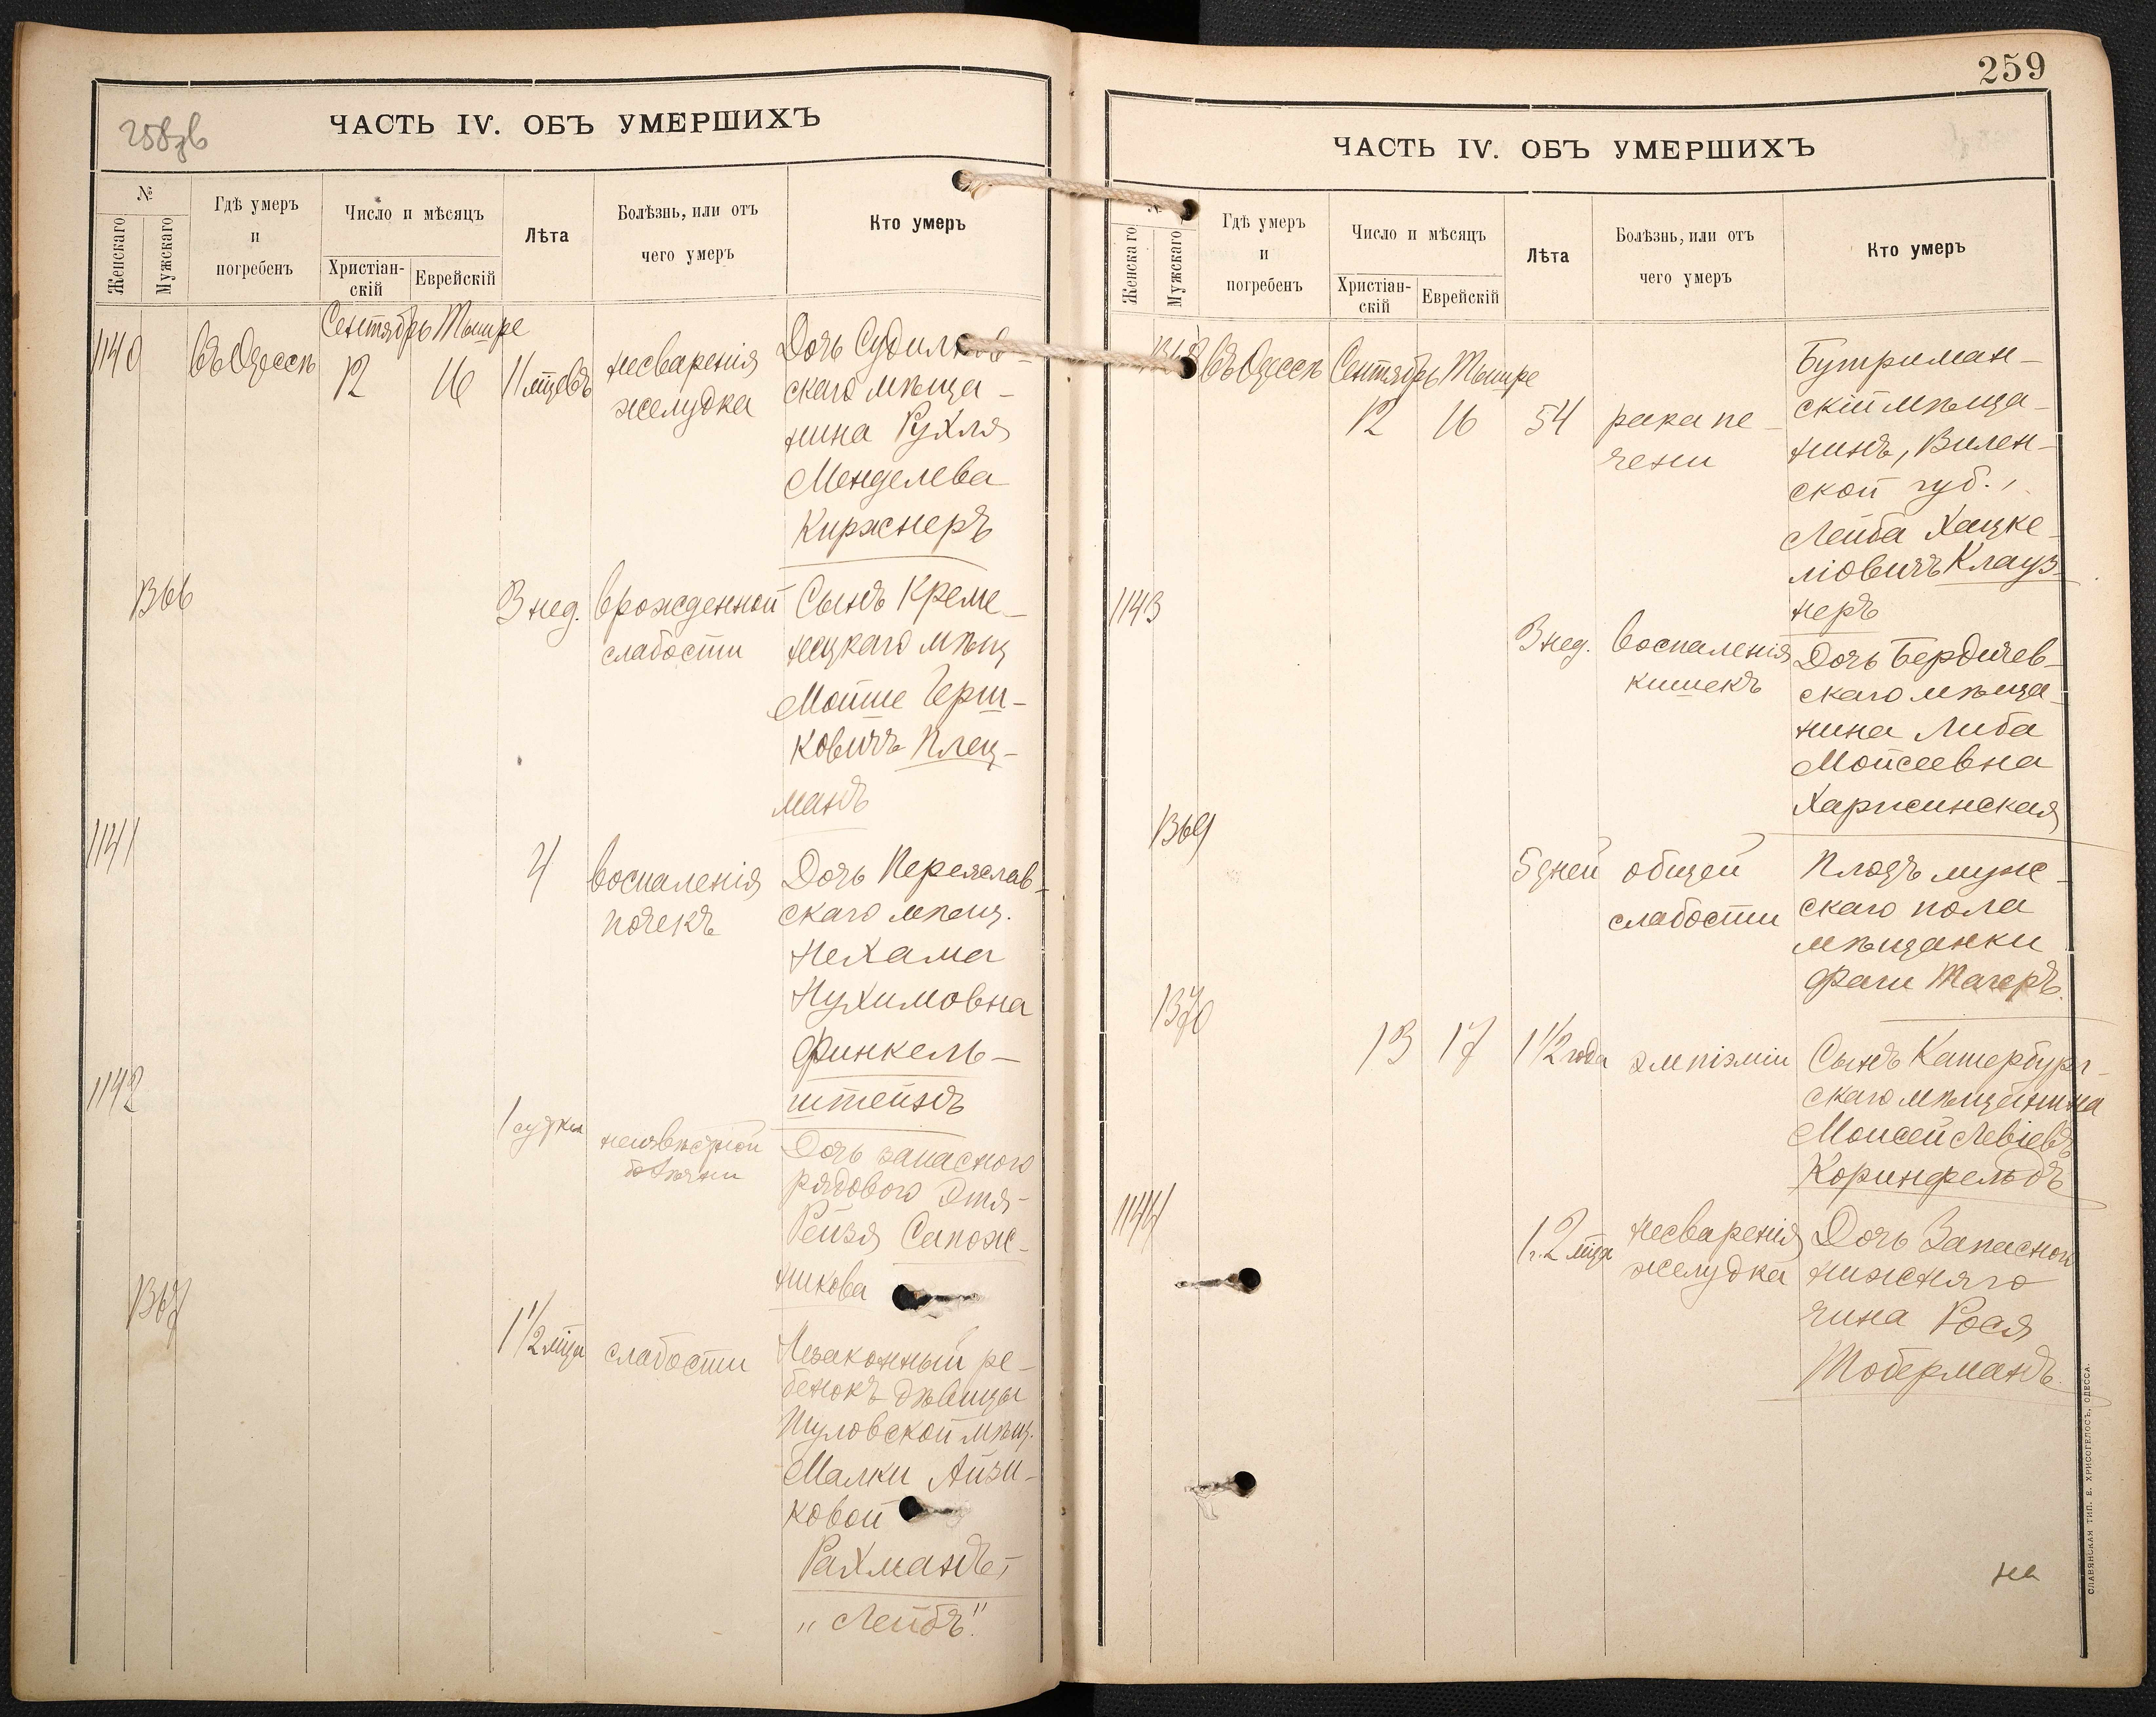 258зв
ЧАСТЬ IV. ОБЪ УМЕРШИХЪ
№
Женскаго
Мужскаго
Гдѣ умеръ
и
погребенъ
Число и мѣсяцъ
Христіан-
скій
Еврейскій
Лѣта
Болѣзнь, или отъ
чего умеръ
Кто умеръ
1140
въ Одессѣ
Сентябрь Тышре
12 16
11 мцевъ
несваренія
желудка
Дочь Судилков-
скаго мѣща-
нина Рухля
Менделева
Киржнеръ
1366
3 нед.
врожденной
слабости
Сынъ Креме-
нецкаго мѣщ
Мойше Герш-
ковичъ Плец-
манъ
1141
4
воспаленія
почекъ
Дочь Переяслав-
скаго мѣщ.
Нехама
Нухимовна
Финкель-
штейнъ
1142
1 сутки
неизвѣстной
болѣзни
Дочь запасного
рядового Этя-
Рейзя Сапож-
никова
1367
1 1/2 мца
слабости
Незаконный ре-
бенокъ дѣвицы
Шуловской мѣщ.
Малки Айзи-
ковой
Рахманъ,
"Лейбъ".
259
ЧАСТЬ IV. ОБЪ УМЕРШИХЪ
№
Женскаго
Мужскаго
Гдѣ умеръ
и
погребенъ
Число и мѣсяцъ
Христіан-
скій
Еврейскій
Лѣта
Болѣзнь, или отъ
чего умеръ
Кто умеръ
1368
въ Одессѣ
Сентябрь Тышре
12 16
54
рака пе-
чени
Бутриман-
скій мѣща-
нинъ, Вилен-
ской губ.,
Лейба Хацке-
ліовичъ Клауз-
неръ
1143
3 нед.
воспаленія
кишекъ
Дочь Бердичев-
скаго мѣща-
нина Либа
Мойсеевна
Харжинская
1369
5 дней
общей
слабости
Плодъ муж-
скаго пола
мѣщанки
Фаги Тагеръ.
1370
13 17
1 1/2 года
эмпіэміи
Сынъ Катербург-
скаго мѣщанина
Моисей Левіевъ
Коринфельдъ
1144
1 г. 2 мца
несваренія
желудка
Дочь Запасного
нижняго
чина Рося
Тоберманъ.
на
СЛАВЯНСКАЯ ТИП. Е. ХРИСОГЕЛОСЪ, ОДЕССА.